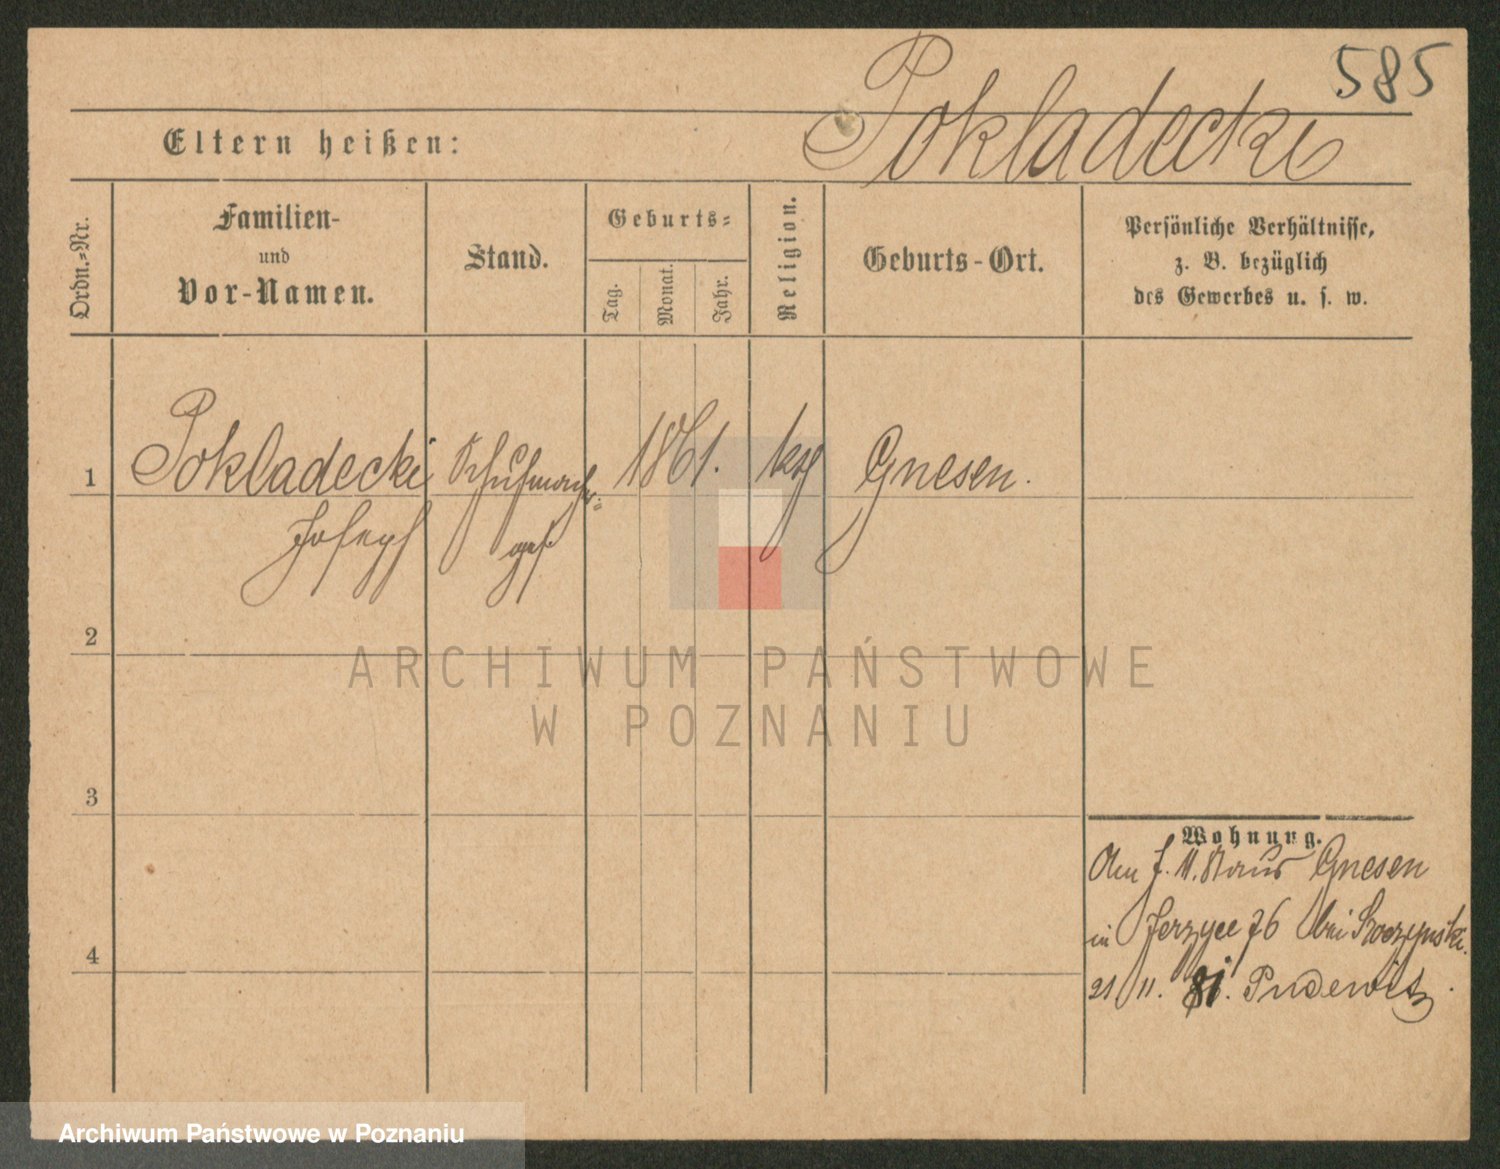 585
Pokladecki
Eltern heißen:
Ordn.=Nr.
Familien-
und
Vor-Namen.
Stand.
Geburts=
Tag.
Monat.
Jahr.
Religion.
Geburts-Ort.
Persönliche Verhältnisse,
z. B. bezüglich
des Gewerbes u. s. w.
1 Pokladecki Schuhmacher= 1861. kth Gnesen.
Joseph ges.
2
3
4
Wohnung.
Gnesen
in Jerzyce 76 bei
21/11. 81. Pudewitz.
ARCHIWUM PAŃSTWOWE
W POZNANIU
Archiwum Państwowe w Poznaniu